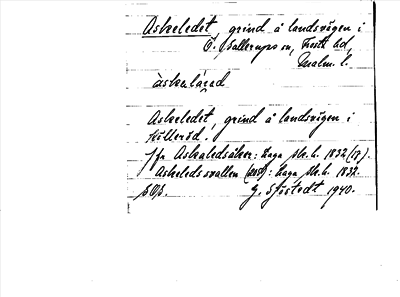 Askeledet grind å landsvägen i
Ö. Sallerups sn, Frosta hd,
Malm. l.
àskalácad
Askeledet, grind å landsvägen i
Jfr Askaledsåker: Laga Sk. h. 1832 (17).
Askeledsvallen: Laga Sk. h. 1832.
G. Sjöstedt 1940.